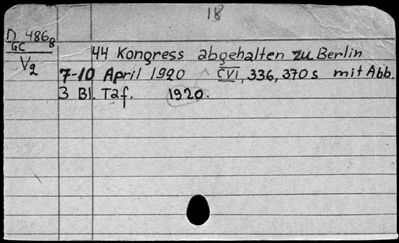 18
D 4868
GC
V2
44 Kongress abgehalten zu Berlin
7-10 April 1920 ^ CVI, 336, 370 s mit Abb.
3 Bl. Taf. 1920.